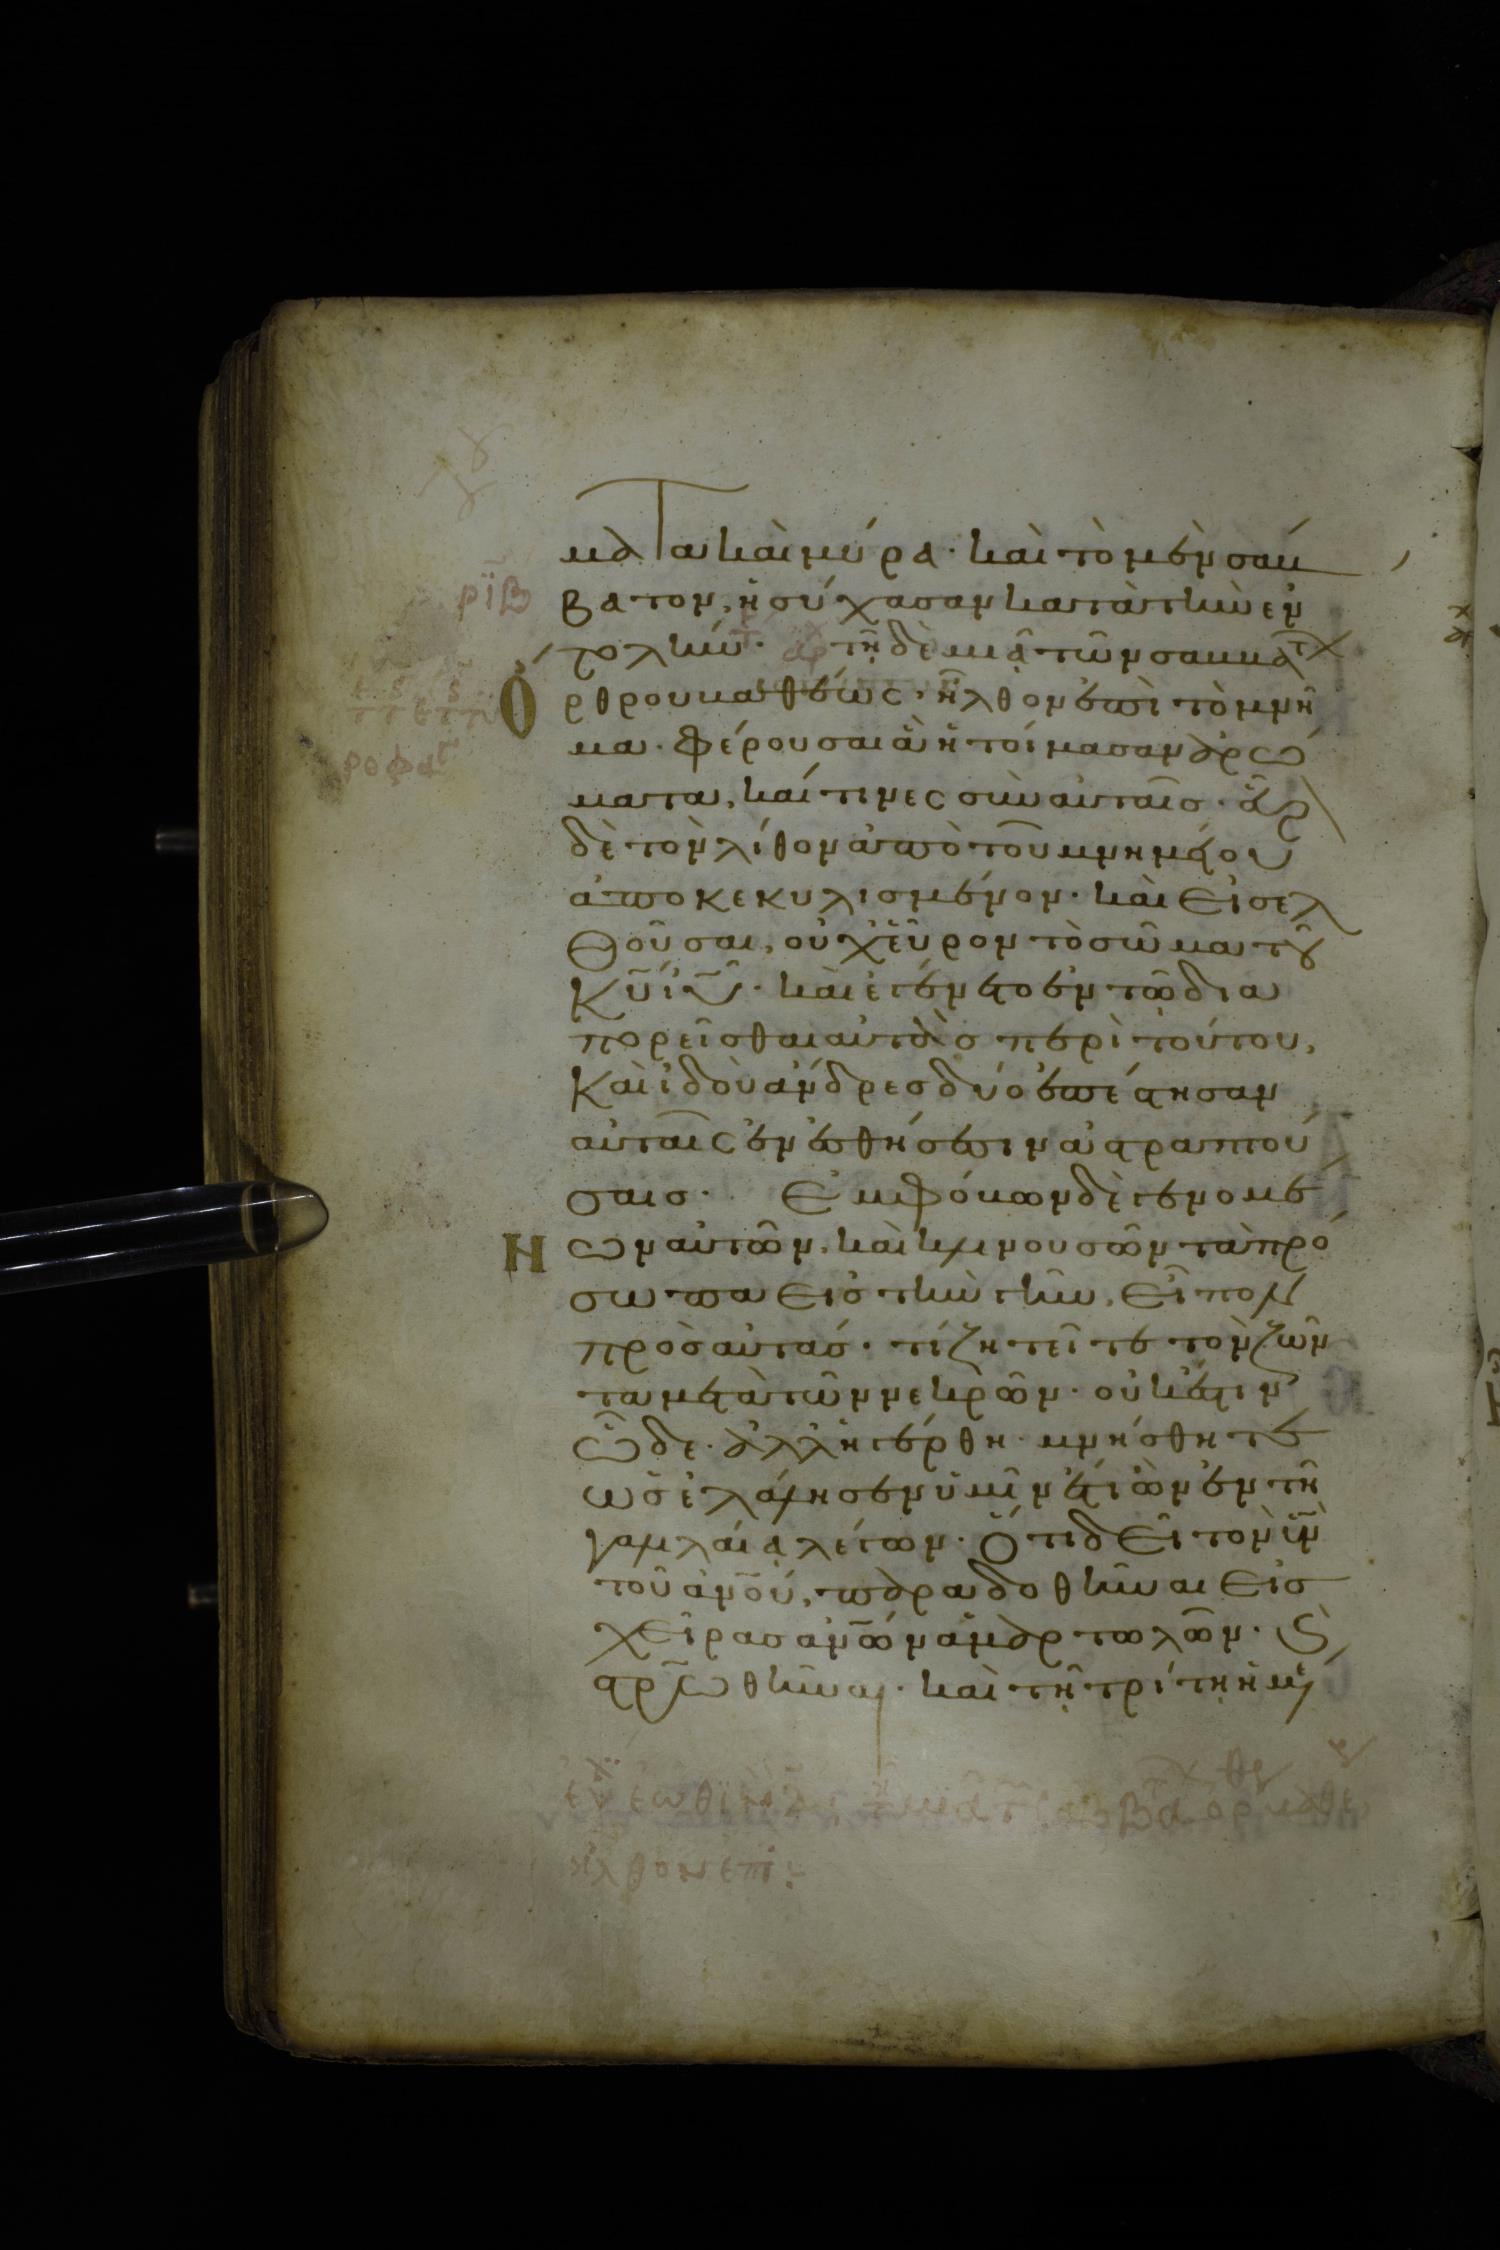 ματα καὶ μύρα· καὶ τὸ μὲν σάμ
βατον, ἡσύχασαν κατὰ τὴν ἐν
ριβ
τολήν· τῇ δὲ μιᾷ τῶν σαμμά
Ὄρθρου βαθέως, ἦλθον ἐπὶ τὸ μνῆ
μα· φέρουσαι ἃ ἡτοίμασαν ἀρώ
ματα, καί τινες σὺν αὐταῖς· εὗρ
δὲ τὸν λίθον ἀπὸ τοῦ μνημείου
ἀποκεκυλισμένον· καὶ εἰσελ
θοῦσαι, οὐχ εὗρον τὸ σῶμα τοῦ
κυ ιυ· καὶ ἐγένετο ἐν τῷ δια
πορεῖσθαι αὐτὰς περὶ τούτου,
καὶ ἰδοὺ ἄνδρες δύο ἐπέστησαν
αὐταῖς ἐν ἐσθήσεσιν ἀστραπτού
σαις· Ἐμφόβων δὲ γενομέ
Νων αὐτῶν, καὶ κλινουσῶν τὰ πρό
σωπα εἰς τὴν γῆν, εἶπον
πρὸς αὐτάς· τί ζητεῖτε τὸν ζῶν
τα μετὰ τῶν νεκρῶν· οὐκ ἔστιν
ὧδε· ἀλλ' ἠγέρθη· μνήσθητε
ὡς ἐλάλησεν ὑμῖν ἔτι ὢν ἐν τῇ
γαλιλαίᾳ λέγων· ὅτι δεῖ τὸν υν
τοῦ ανου, παραδοθῆναι εἰς
χεῖρας ανων ἁμαρτωλῶν· κ
στρωθῆναι· καὶ τῇ τρίτῃ ἡμ